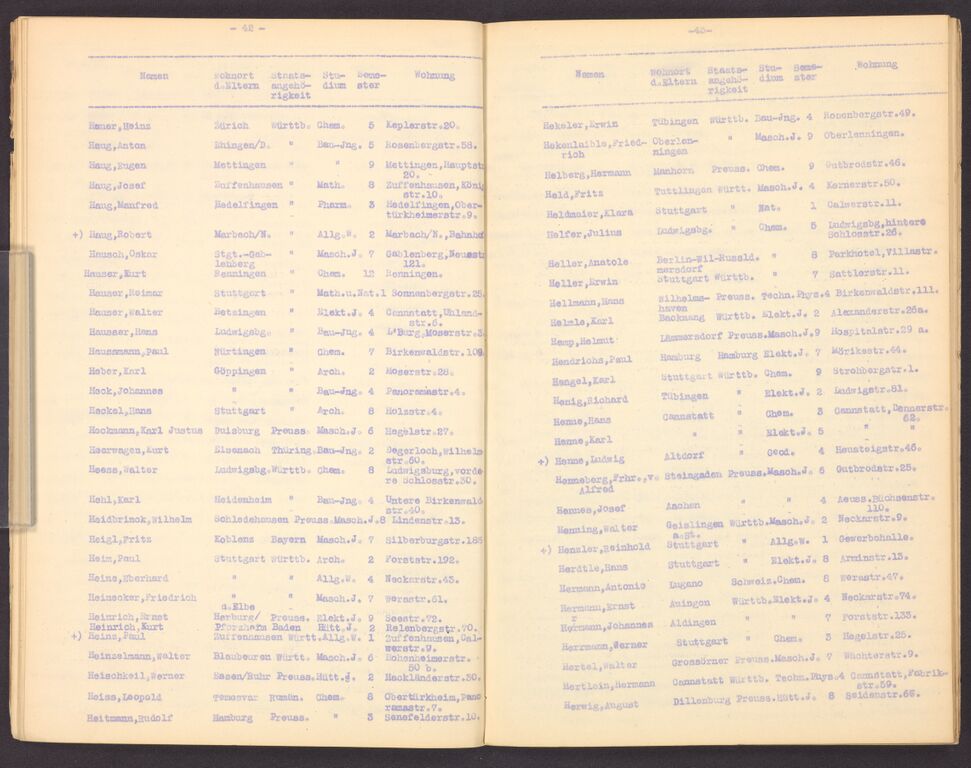 - 42 -
Namen Wohnort d.Eltern Staats-angehö-rigkeit Stu-dium Seme-ster Wohnung
Hauer,Heinz Zürich Württb. Chem. 5 Keplerstr.20.
Haug,Anton Ehingen/D. " Bau-Jng. 5 Rosenbergstr.58.
Haug,Eugen Mettingen " " 9 Mettingen,Hauptst
20.
Haug,Josef Zuffenhausen " Math. 8 Zuffenhausen,König
str.10.
Haug,Manfred Hedelfingen " Pharm. 3 Hedelfingen,Ober-
türkheimerstr.9.
+) Haug,Robert Marbach/N. " Allg.W. 2 Marbach/N.,Bahnhof
Hausch,Oskar Stgt.-Gab- " Masch.J. 7 Gablenberg,Neuest
lenberg 121.
Hauser,Kurt Renningen " Chem. 12 Renningen.
Hauser,Reimar Stuttgart " Math.u.Nat.1 Sonnenbergstr.25
Hauser,Walter Betzingen " Elekt.J. 4 Cannstatt,Uhland-
str.6.
Hausser,Hans Ludwigsbg. " Bau-Jng. 4 L'Burg,Moserstr.3
Haussmann,Paul Nürtingen " Chem. 7 Birkenwaldstr.109
Heber,Karl Göppingen " Arch. 2 Moserstr.28.
Heck,Johannes " " Bau-Jng. 4 Panoramastr.4.
Heckel,Hans Stuttgart " Arch. 8 Holzstr.4.
Heckmann,Karl Justus Duisburg Preuss. Masch.J. 6 Hegelstr.27.
Heerwagen,Kurt Eisenach Thüring. Bau-Jng. 2 Degerloch,Wilhelm
str.60.
Heess,Walter Ludwigsbg. Württb. Chem. 8 Ludwigsburg,vorde
re Schlosstr.30.
Hehl,Karl Heidenheim " Bau-Jng. 4 Untere Birkenwald
str.40.
Heidbrinck,Wilhelm Schledehausen Preuss.Masch.J.8 Lindenstr.13.
Heigl,Fritz Koblenz Bayern Masch.J. 7 Silberburgstr.185
Heim,Paul Stuttgart Württb. Arch. 2 Forststr.192.
Heine,Eberhard " " Allg.W. 4 Neckarstr.43.
Heinecker,Friedrich " " Masch.J. 7 Werastr.61.
d.Elbe
Heinrich,Ernst Harburg/ Preuss. Elekt.J. 9 Seestr.72.
Heinrich,Kurt Pforzheim Baden Hütt.J. 2 Relenbergstr.70.
+) Heinz,Paul Zuffenhausen Württ.Allg.W. 1 Zuffenhausen,Cal-
werstr.9.
Heinzelmann,Walter Blaubeuren Württ. Masch.J. 6 Hohenheimerstr.
50 b.
Heischkeil,Werner Essen/Ruhr Preuss.Hütt.J. 2 Hackländerstr.30.
Heiss,Leopold Temesvar Rumän. Chem. 8 Obertürkheim,Pano
ramastr.7.
Heitmann,Rudolf Hamburg Preuss. " 3 Senefelderstr.10.
-43-
Namen Wohnort d.Eltern Staats-angehö-rigkeit Stu-dium Seme-ster Wohnung
Hekeler,Erwin Tübingen Württb. Bau-Jng. 4 Rosenbergstr.49.
Hekenlaible,Fried- Oberlen- " Masch.J. 9 Oberlenningen.
rich ningen
Helberg,Hermann Manhorn Preuss. Chem. 9 Gutbrodstr.46.
Held,Fritz Tuttlingen Württ. Masch.J. 4 Kernerstr.50.
Heldmaier,Klara Stuttgart " Nat. 1 Calwerstr.11.
Helfer,Julius Ludwigsbg. " Chem. 5 Ludwigsbg,hintere
Schlosstr.26.
Heller,Anatole Berlin-Wil-Russld. " 8 Parkhotel,Villastr.
mersdorf
Heller,Erwin Stuttgart Württb. " 7 Sattlerstr.11.
Hellmann,Hans Wilhelms- Preuss. Techn.Phys.4 Birkenwaldstr.111.
haven
Helmle,Karl Backnang Württb. Elekt.J. 2 Alexanderstr.26a.
Hemp,Helmut Lämmersdorf Preuss.Masch.J.9 Hospitalstr.29 a.
Hendrichs,Paul Hamburg Hamburg Elekt.J. 7 Mörikestr.44.
Hengel,Karl Stuttgart Württb. Chem. 9 Strohbergstr.1.
Henig,Richard Tübingen " Elekt.J. 2 Ludwigstr.81.
Henne,Hans Cannstatt " Chem. 3 Cannstatt,Dennerstr.
62.
Henne,Karl " " Elekt.J. 5 " "
+) Henne,Ludwig Altdorf " Geod. 4 Heusteigstr.46.
Henneberg,Frhr.,v. Steingaden Preuss.Masch.J. 6 Gutbrodstr.25.
Alfred
Hennes,Josef Aachen " " 4 Aeuss.Büchsenstr.
110.
Henning,Walter Geislingen Württb.Masch.J. 2 Neckarstr.9.
a.St.
+) Henzler,Reinhold Stuttgart " Allg.W. 1 Gewerbehalle.
Herdtle,Hans Stuttgart " Elekt.J. 8 Arminstr.13.
Hermann,Antonio Lugano Schweiz.Chem. 8 Werastr.47.
Hermann,Ernst Auingen Württb.Elekt.J. 4 Neckarstr.74.
r
Hermann,Johannes Aldingen " " 7 Forststr.133.
Herrmann,Werner Stuttgart " Chem. 3 Hegelstr.25.
Hertel,Walter Grossörner Preuss.Masch.J. 7 Wächterstr.9.
Hertlein,Hermann Cannstatt Württb. Techn.Phys.4 Cannstatt,Fabrik-
str.39.
Herwig,August Dillenburg Preuss.Hütt.J. 8 Seidenstr.66.